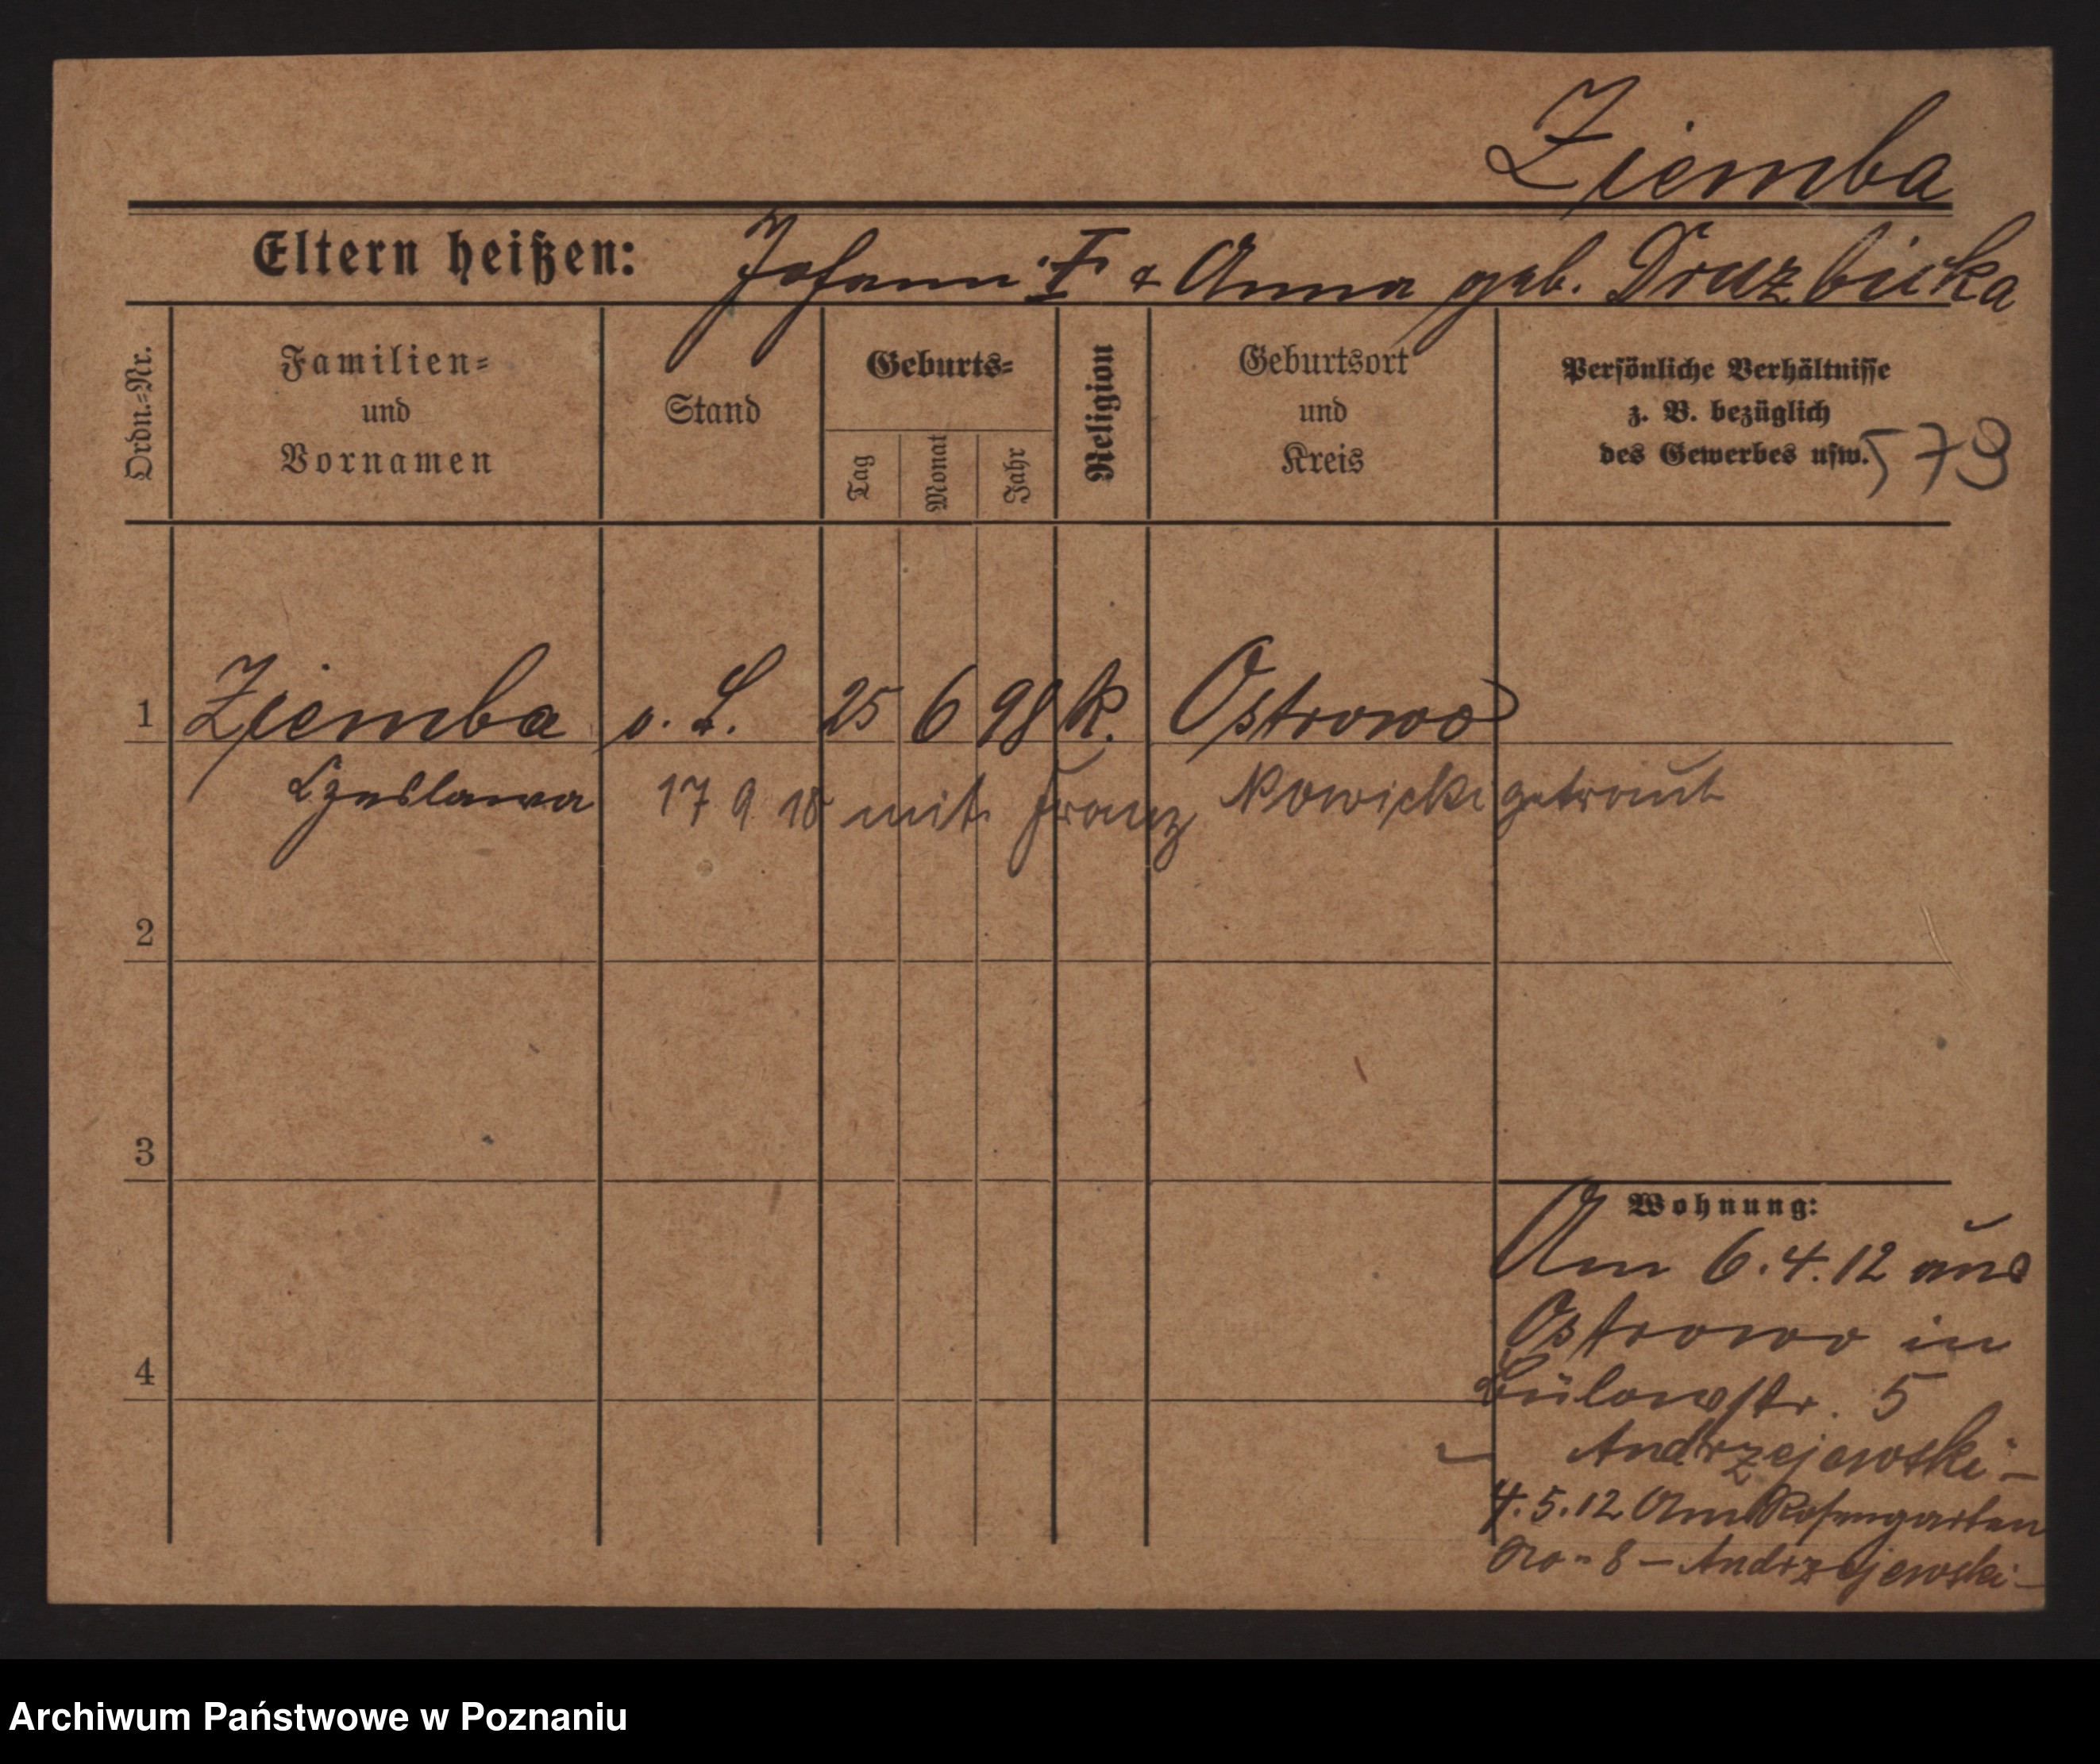 Ziemba
Eltern heißen: Johann † & Anna geb. Druzbicka
Ordn.-Nr.
Familien-
und
Vornamen
Stand
Geburts-
Tag
Monat
Jahr
Religion
Geburtsort
und
Kreis
Persönliche Verhältnisse
z. B. bezüglich
des Gewerbes usw.
579
1 Ziemba o. S. 25 6 98 k. Ostrowo
Czeslawa 17 9 18 mit Franz Nowicki getraut
2
3
4
Wohnung:
Am 6.4.12 aus
Ostrowo in
Bülowstr. 5
Andrzejewski –
4.5.12 Am Rosengarten
No 8 – Andrzejewski –
Archiwum Państwowe w Poznaniu